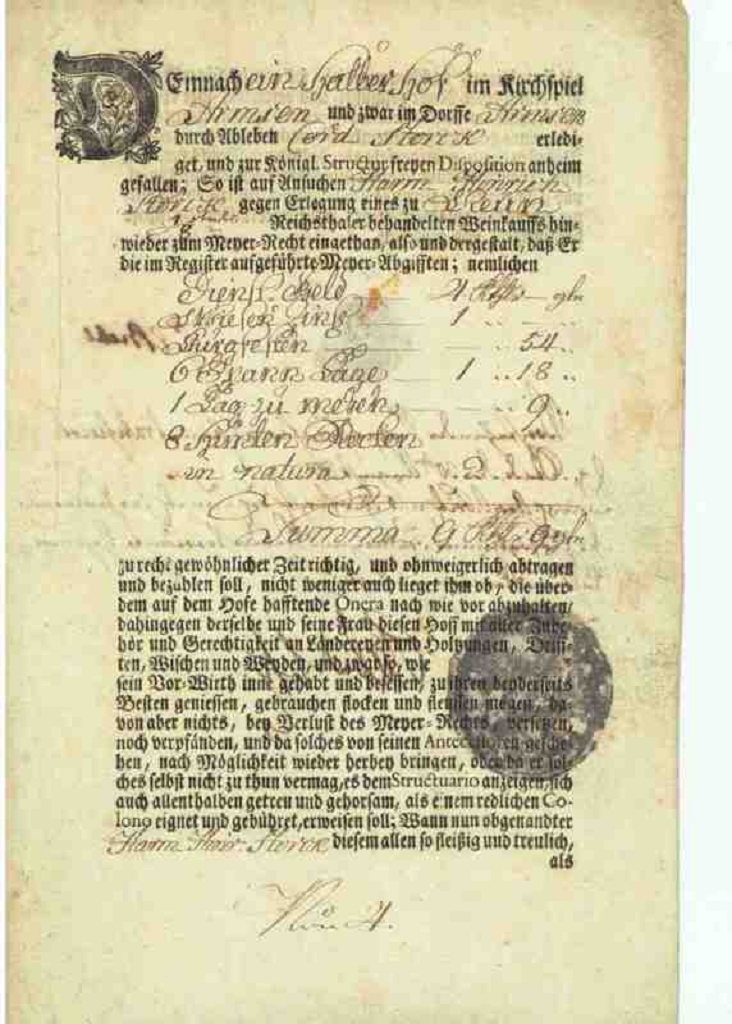 Demnach ein Halber Hof im Kirchspiel
Armsen und zwar im Dorffe Armsen
durch Ableben Cord Storck erledi-
get, und zur Königl. Structur freyen Disposition anheim
gefallen; So ist auf Ansuchen Harm Hinrich
Storck gegen Erlegung eines zu
Reichsthaler behandelten Weinkauffs hin-
wieder zum Meyer-Recht eingethan, also und dergestalt, daß Er
die im Register aufgeführte Meyer-Abgifften; nemlichen
Dienst Geld 4 Rthlr — ggl
Wiesen Zins 1 .. — ..
Burgfesten — .. 54 ..
6 Spann Tage 1 .. 18 ..
1 Tag zu meyen .. 9 ..
8 Himten Rocken
in natura 2 ..
Summa 9 Rthlr 9 ggl
zu recht gewöhnlicher Zeit richtig, und ohnweigerlich abtragen
und bezahlen soll, nicht weniger auch lieget ihm ob, die über-
dem auf dem Hofe hafftende Onera nach wie vor abzuhalten/
dahingegen derselbe und seine Frau diesen Hoff mit aller Zube-
hör und Gerechtigkeit an Länderenen und Holtzungen, Triff-
ten, Wischen und Weyden, und zwar so, wie
sein Vor-Wirth inne gehabt und besessen, zu ihren beyderseits
Besten geniessen, gebrauchen flocken und fleussen mögen, da-
von aber nichts, bey Verlust des Meyer-Rechts, versetzen,
noch verpfänden, und da solches von seinen Antecessoren gesche-
hen, nach Möglichkeit wieder herbey bringen, oder da er sol-
ches selbst nicht zu thun vermag, es dem Structuario anzeigen, sich
auch allenthalben getreu und gehorsam, als einem redlichen Co-
lono eignet und gebühret, erweisen soll; Wann nun obgenandter
Harm Hinr. Storck diesem allen so fleißig und treulich,
als